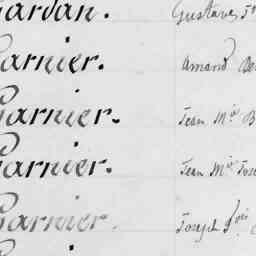 Gardan. Gustave
Garnier. Amand
Garnier. Jean Mie B
Garnier. Jean Mie Jose
Garnier. Joseph fois